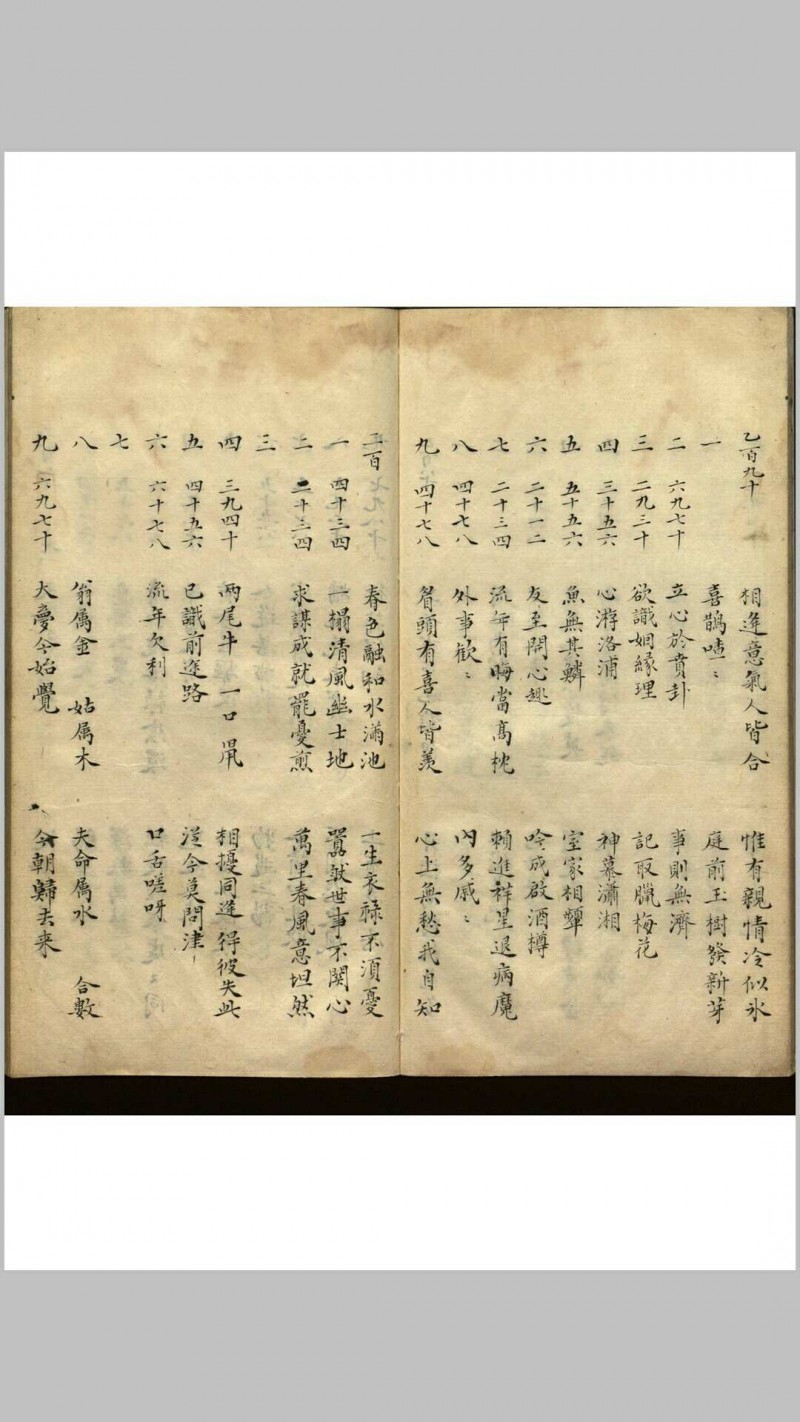 乙百九十 相逢意氣人皆合 惟有親情冷似氷
一 喜鵲喳〻 庭前玉樹發新芽
二 六九七十 立心於賁卦 事則無濟
三 二九三十 欲識姻緣理 記取臘梅花
四 三十五六 心游洛浦 神慕瀟湘
五 五十五六 魚無其鱗 室家相顰
六 二十一二 友至閑心趣 吟成啟酒樽
七 二十三四 流年有晦當高枕 賴進祥星退病魔
八 四十七八 外事歡〻 內多慼〻
九 四十七八 眉頭有喜人皆羨 心上無愁我自知
二百 春色融和水滿池 一生衣祿不須憂
一 四十三四 一榻清風幽士地 囂然世事不関心
二 二十三四 求謀成就罷憂煎 萬里春風意坦然
三
四 三九四十 兩尾牛 一口鼡 相擾同途 得彼失此
五 四十五六 已識前途路 從今莫問津
六 六十七八 流年欠利 口舌嗟呀
七
八 翁属金 姑属木 夫命属水 合數
九 六九七十 大夢今始覺 今朝歸去来